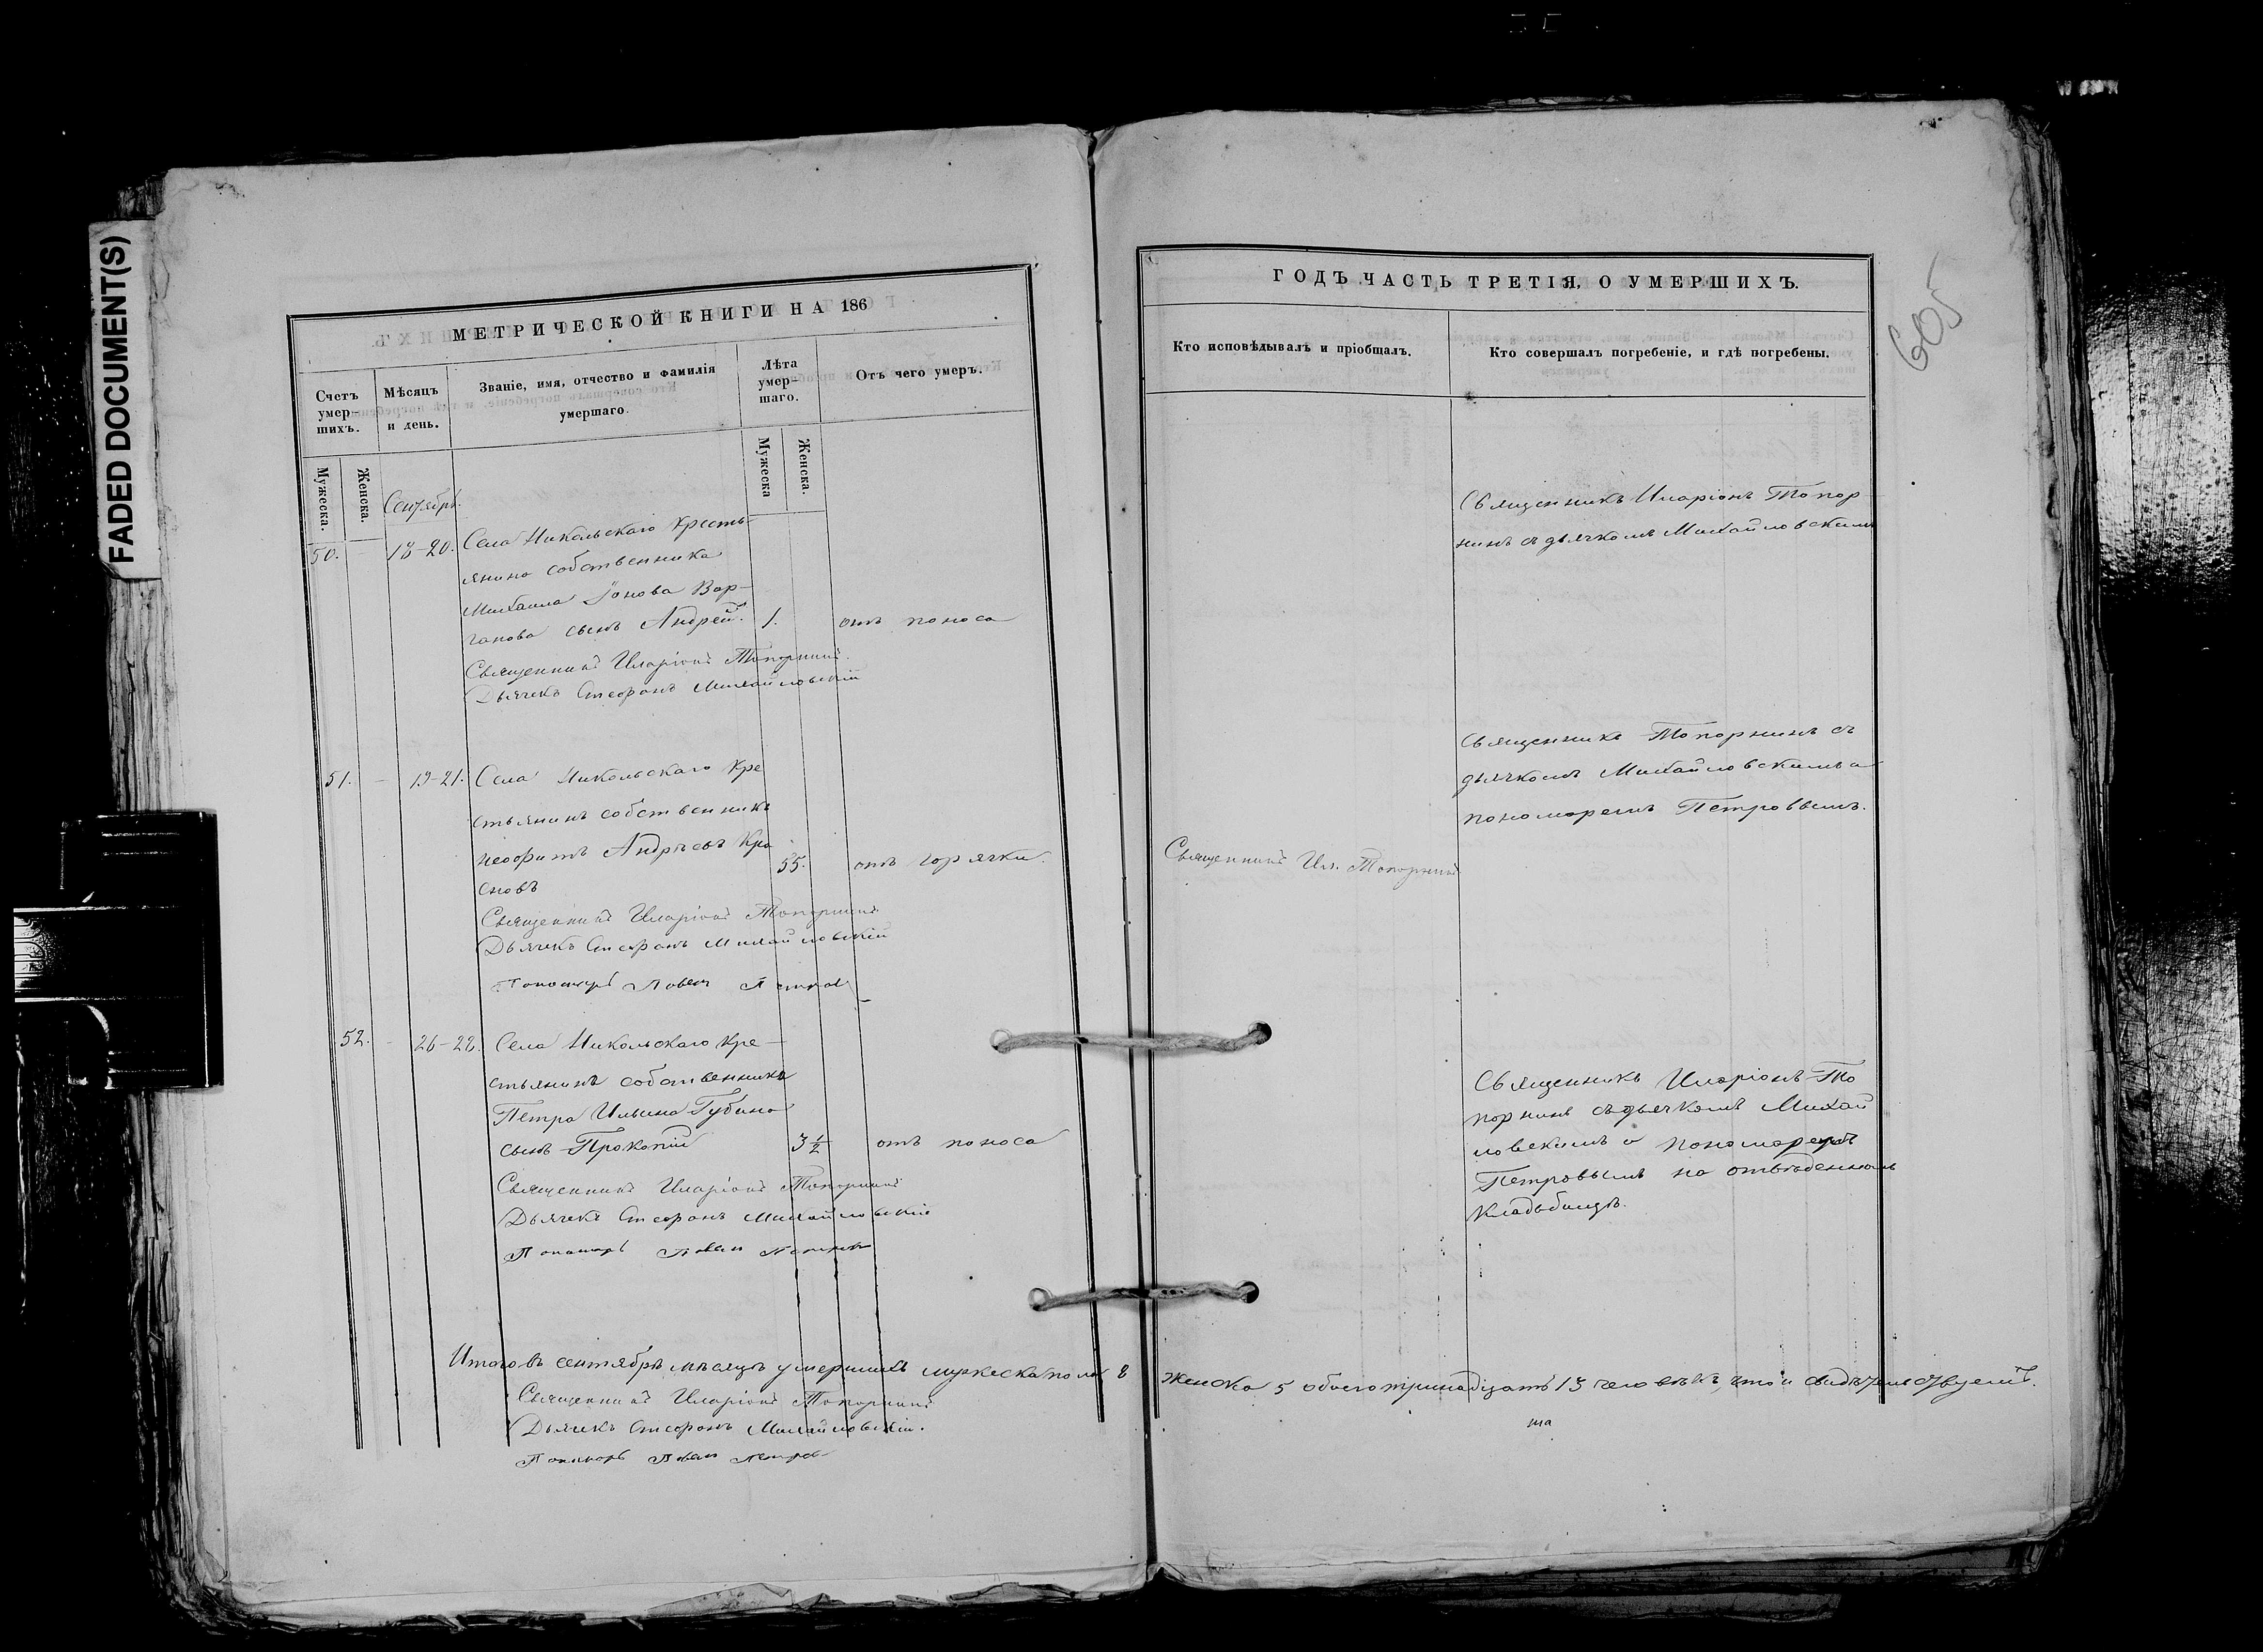 FADED DOCUMENT(S)
МЕТРИЧЕСКОЙ КНИГИ НА 186
Счетъ умер-шихъ.
Мѣсяцъ и день.
Званіе, имя, отчество и фамилія
умершаго.
Лѣта умер-шаго.
Отъ чего умеръ.
Мужеска.
Женска.
Мужеска
Женска.
Сентябрь.
50. - 18-20. Села Никольскаго кресть-
янина собственника
Михаила Іонова Вар-
ганова сынъ Андрей. 1. отъ поноса
Священникъ Иларіонъ Топорнинъ.
Дьячекъ Стефанъ Михайловскій
51. - 19-21. Села Никольскаго кре
стьянинъ собственникъ
Неофитъ Андреевъ Кра 55. отъ горячки.
сновъ
Священникъ Иларіонъ Топорнинъ
Дьячекъ Стефанъ Михайловскій
Пономарь Павелъ Петров
52. - 26-28. Села Никольскаго кре-
стьянина собственника
Петра Ильина Губина
сынъ Прокопій 3 1/2 отъ поноса
Священникъ Иларіонъ Топорнинъ
Дьячекъ Стефанъ Михайловскій
Пономарь Павел Петров
Итого въ сентябрѣ мѣсяцѣ умершихъ мужеска пола 8
Священникъ Иларіонъ Топорнинъ
Дьячекъ Стефанъ Михайловскій.
Пономарь Павел Петров
ГОДЪ ЧАСТЬ ТРЕТІЯ, О УМЕРШИХЪ.
605
Кто исповѣдывалъ и пріобщалъ.
Кто совершалъ погребеніе, и гдѣ погребены.
Священникъ Иларіонъ Топор
нинъ съ дьячкомъ Михайловскимъ
Священникъ Топорнинъ съ
дьячкомъ Михайловскимъ и
пономаремъ Петровымъ.
Священникъ Ил. Топорнинъ
Священникъ Иларіонъ То
порнинъ съ дьячкомъ Михай
ловскимъ и пономаремъ
Петровымъ на отведенномъ
кладбищѣ.
женска 5 обоего тринадцать 13 человѣкъ, что и свидѣтельствуемъ.
та